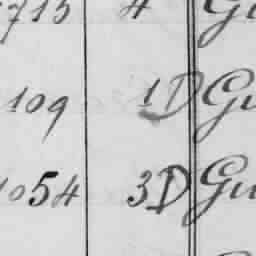 715 4 Gu
109 1D Gu
1054 3D Gu